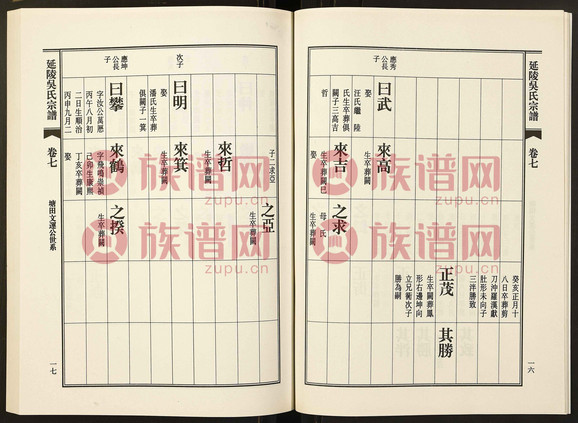 延陵吳氏宗譜
卷七
一六
癸亥正月十
八日卒葬剪
刀沖羅漢獻
肚形未向子
三泮勝致
正茂
生卒闕葬鳳
形右邊坤向
立兄衛次子
勝為嗣
其勝
來高
生卒葬闕
之求
母氏
生卒葬闕
應秀
公長
子
曰武
娶
汪氏繼陸
氏生卒葬俱
闕子三高吉
哲
來吉
生卒葬闕巳
娶
子二求亞
之亞
生卒葬闕
來哲
生卒葬闕
次子
曰明
娶
潘氏生卒葬
俱闕子一箕
來箕
生卒葬闕
應坤
公長
子
曰攀
字汝公萬曆
丙午八月初
二日生順治
丙申九月二
來鶴
字飛鳴崇禎
己卯生康熙
丁亥卒葬闕
娶
之揆
生卒葬闕
延陵吳氏宗譜
卷七
塘田文運公世系
一七
族谱网
zupu.cn
族谱网
zupu.cn
族谱网
zupu.cn
族谱网
zupu.cn